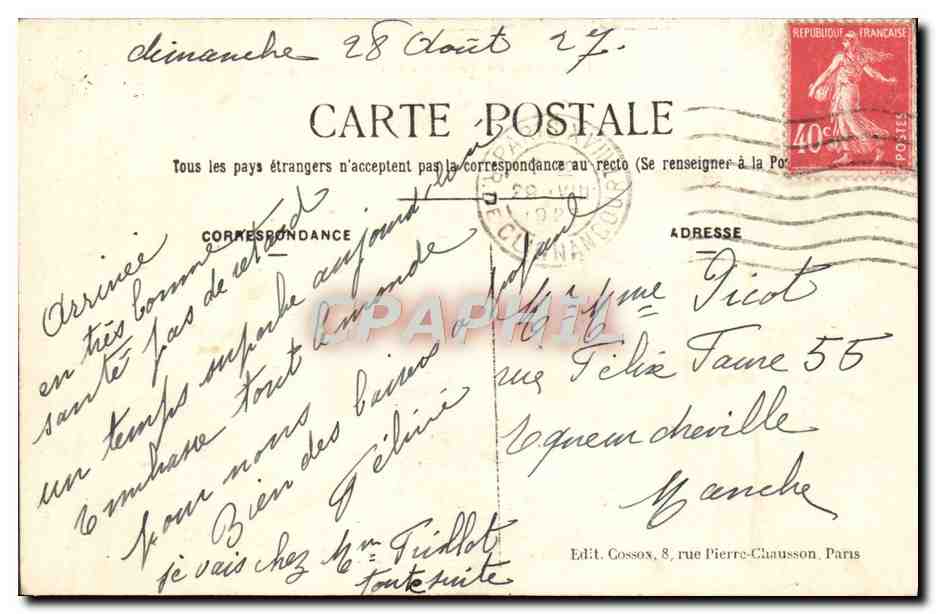 dimanche 28 Août 27.
REPUBLIQUE FRANCAISE
40c
POSTES
CARTE POSTALE
Tous les pays étrangers n'acceptent pas la correspondance au recto (Se renseigner à la Po
CORRESPONDANCE
ADRESSE
Arrivée
en très bonne
santé pas de retard
un temps superbe aujourd'hui
Embrasse tout le monde
pour nous
Bien des baisers
Féline
je vais chez Mme
toute suite
Mr Mme Picot
rue Félix Faure 55
Equeurdreville
Manche
Edit. Cossox, 8, rue Pierre-Chausson, Paris
CPAPHIL